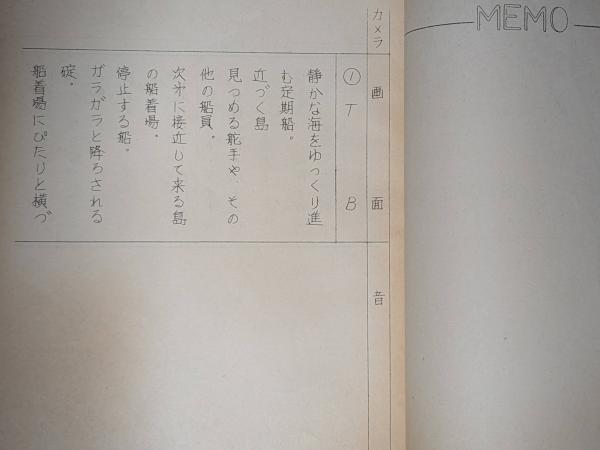 MEMO
カメラ
画面
音
① T B
静かな海をゆっくり進
む定期船。
近づく島
見つめる舵手や、その
他の船員。
次第に接近して来る島
の船着場。
停止する船。
ガラガラと降ろされる
碇。
船着場にぴたりと横づ